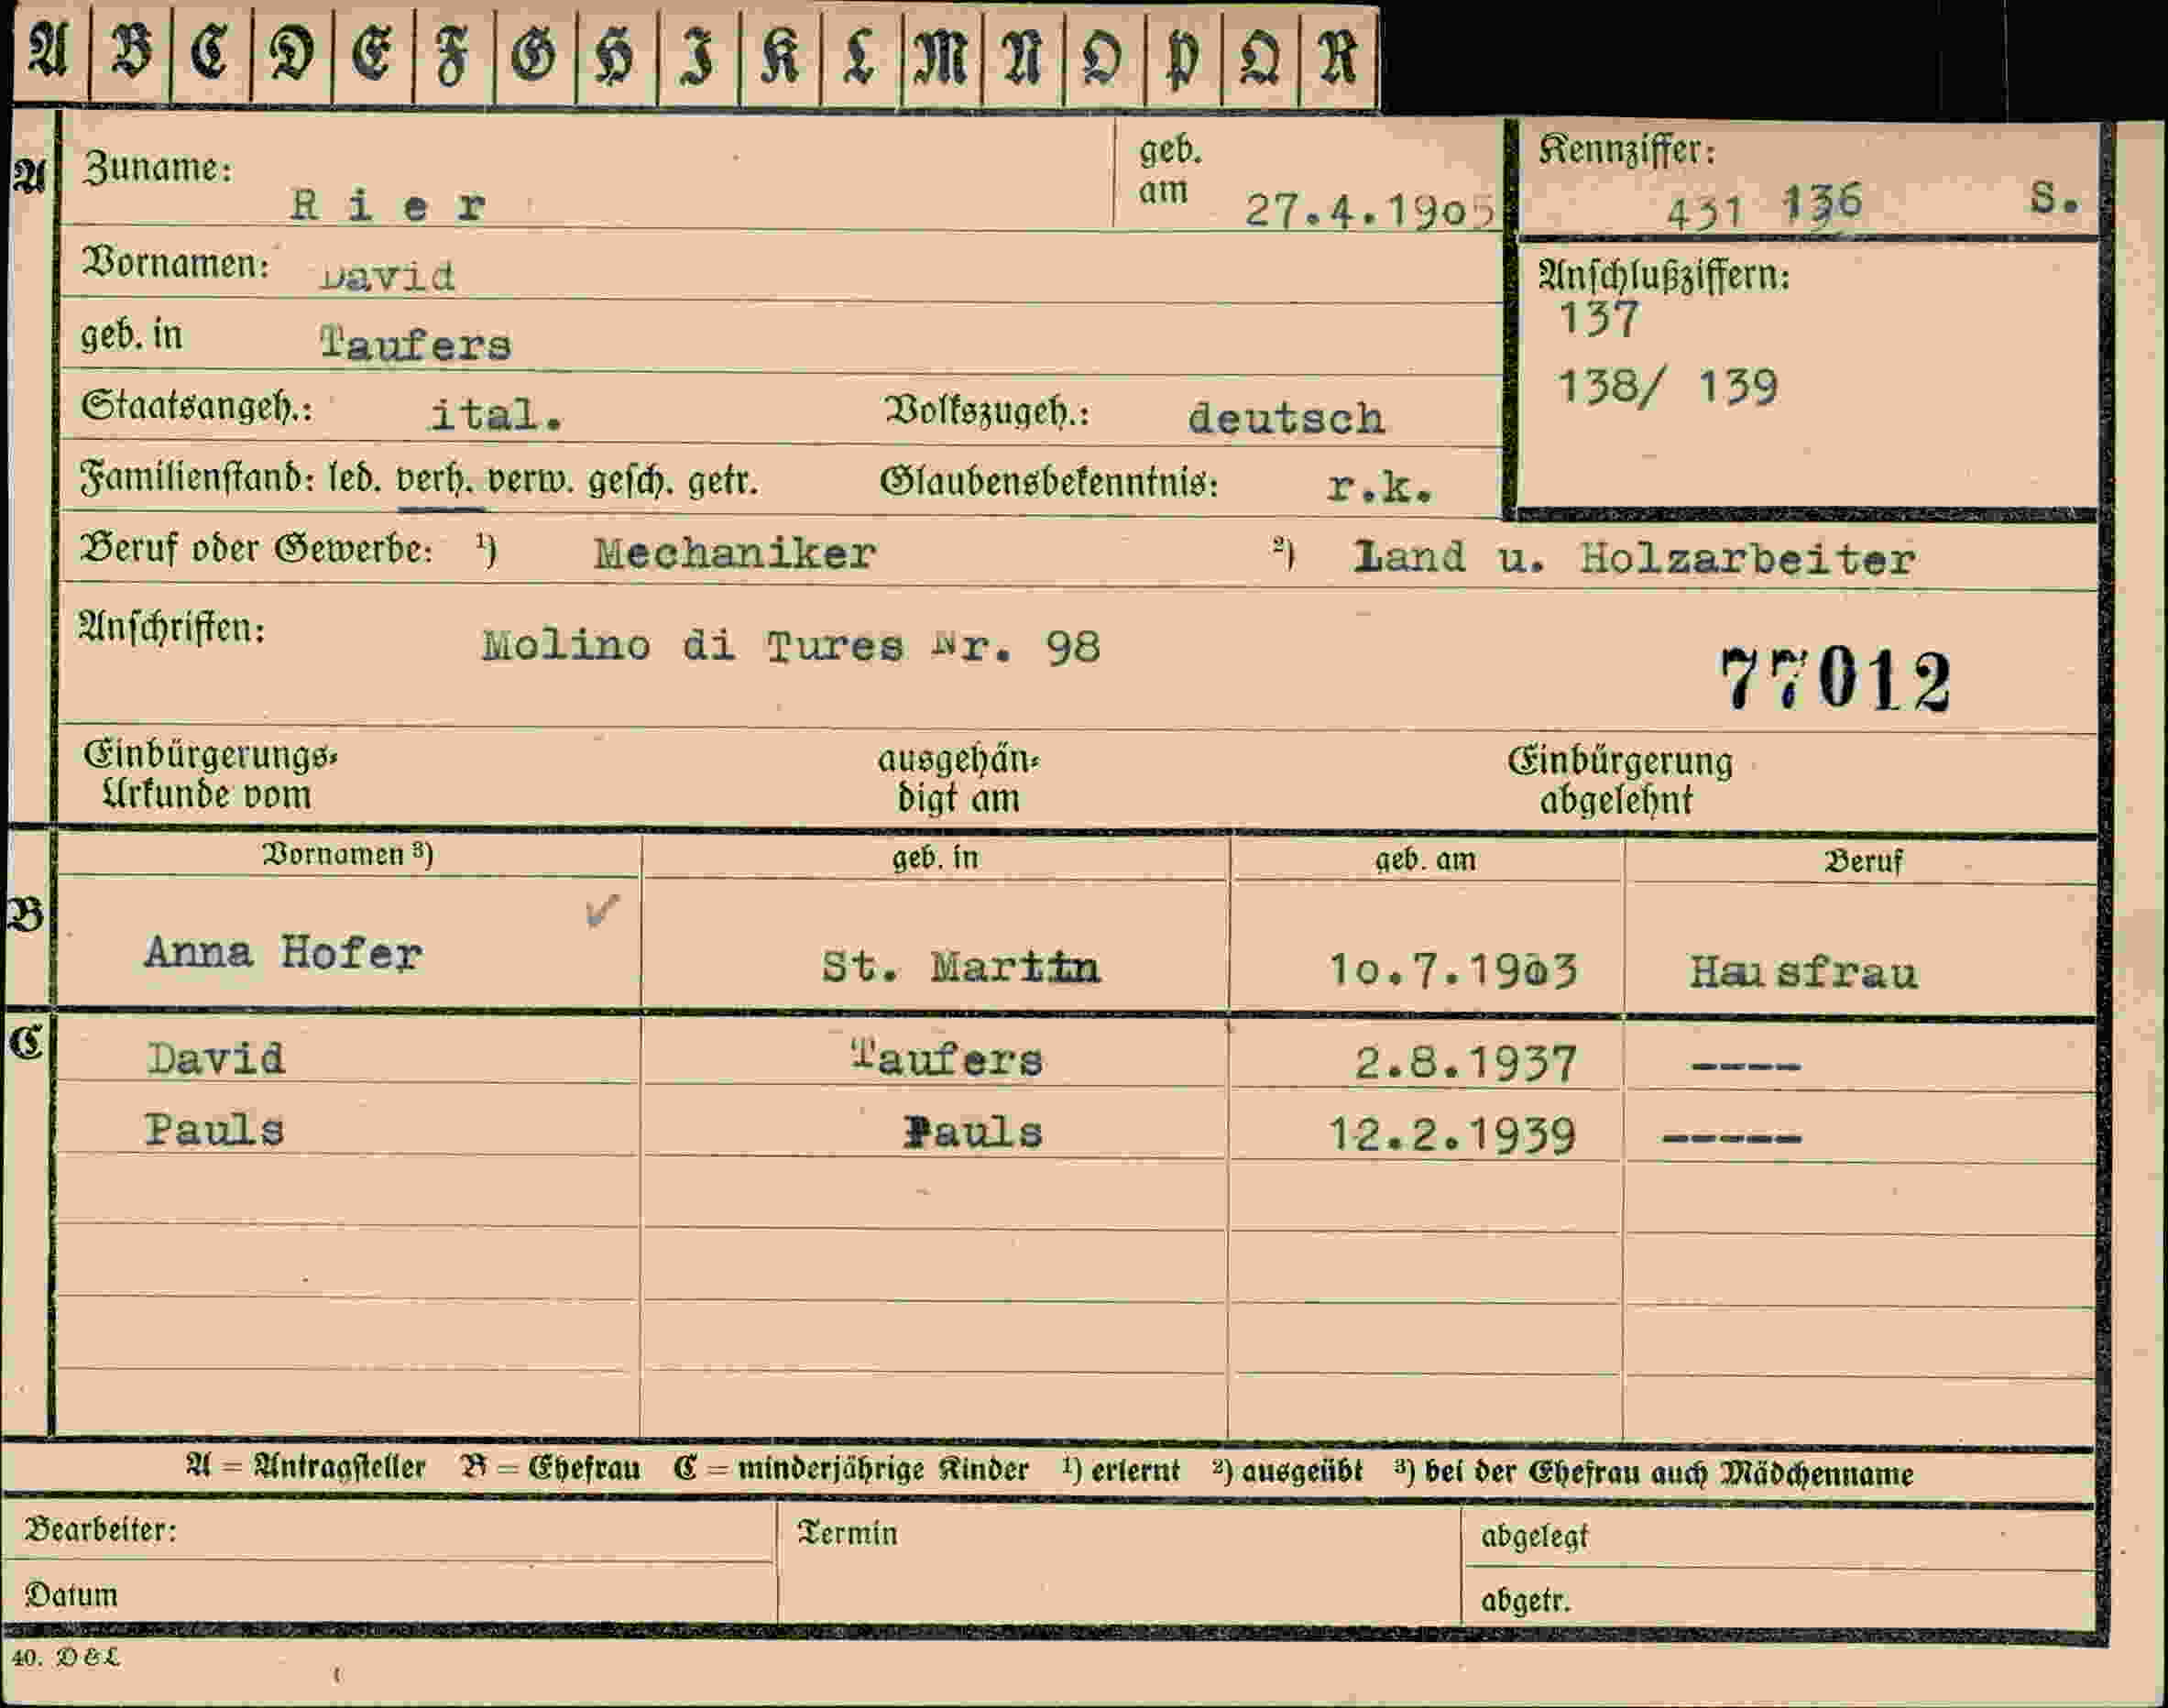 A B C D E F G H I K L M N O P Q R
A Zuname: Rier geb. am 27.4.1905 Kennziffer: 431 136 S.
Vornamen: David Anschlußziffern:
137
geb. in Taufers
138/ 139
Staatsangeh.: ital. Volkszugeh.: deutsch
Familienstand: led. verh. verw. gesch. getr. Glaubensbekenntnis: r.k.
Beruf oder Gewerbe: ¹) Mechaniker ²) Land u. Holzarbeiter
Anschriften: Molino di Tures Nr. 98
77012
Einbürgerungs- ausgehän- Einbürgerung
Urkunde vom digt am abgelehnt
Vornamen ³) geb. in geb. am Beruf
B Anna Hofer ✓ St. Martin 10.7.1903 Hausfrau
C David Taufers 2.8.1937 ----
Pauls Pauls 12.2.1939 -----
A = Antragsteller B = Ehefrau C = minderjährige Kinder ¹) erlernt ²) ausgeübt ³) bei der Ehefrau auch Mädchenname
Bearbeiter: Termin abgelegt
Datum abgetr.
40. D & L